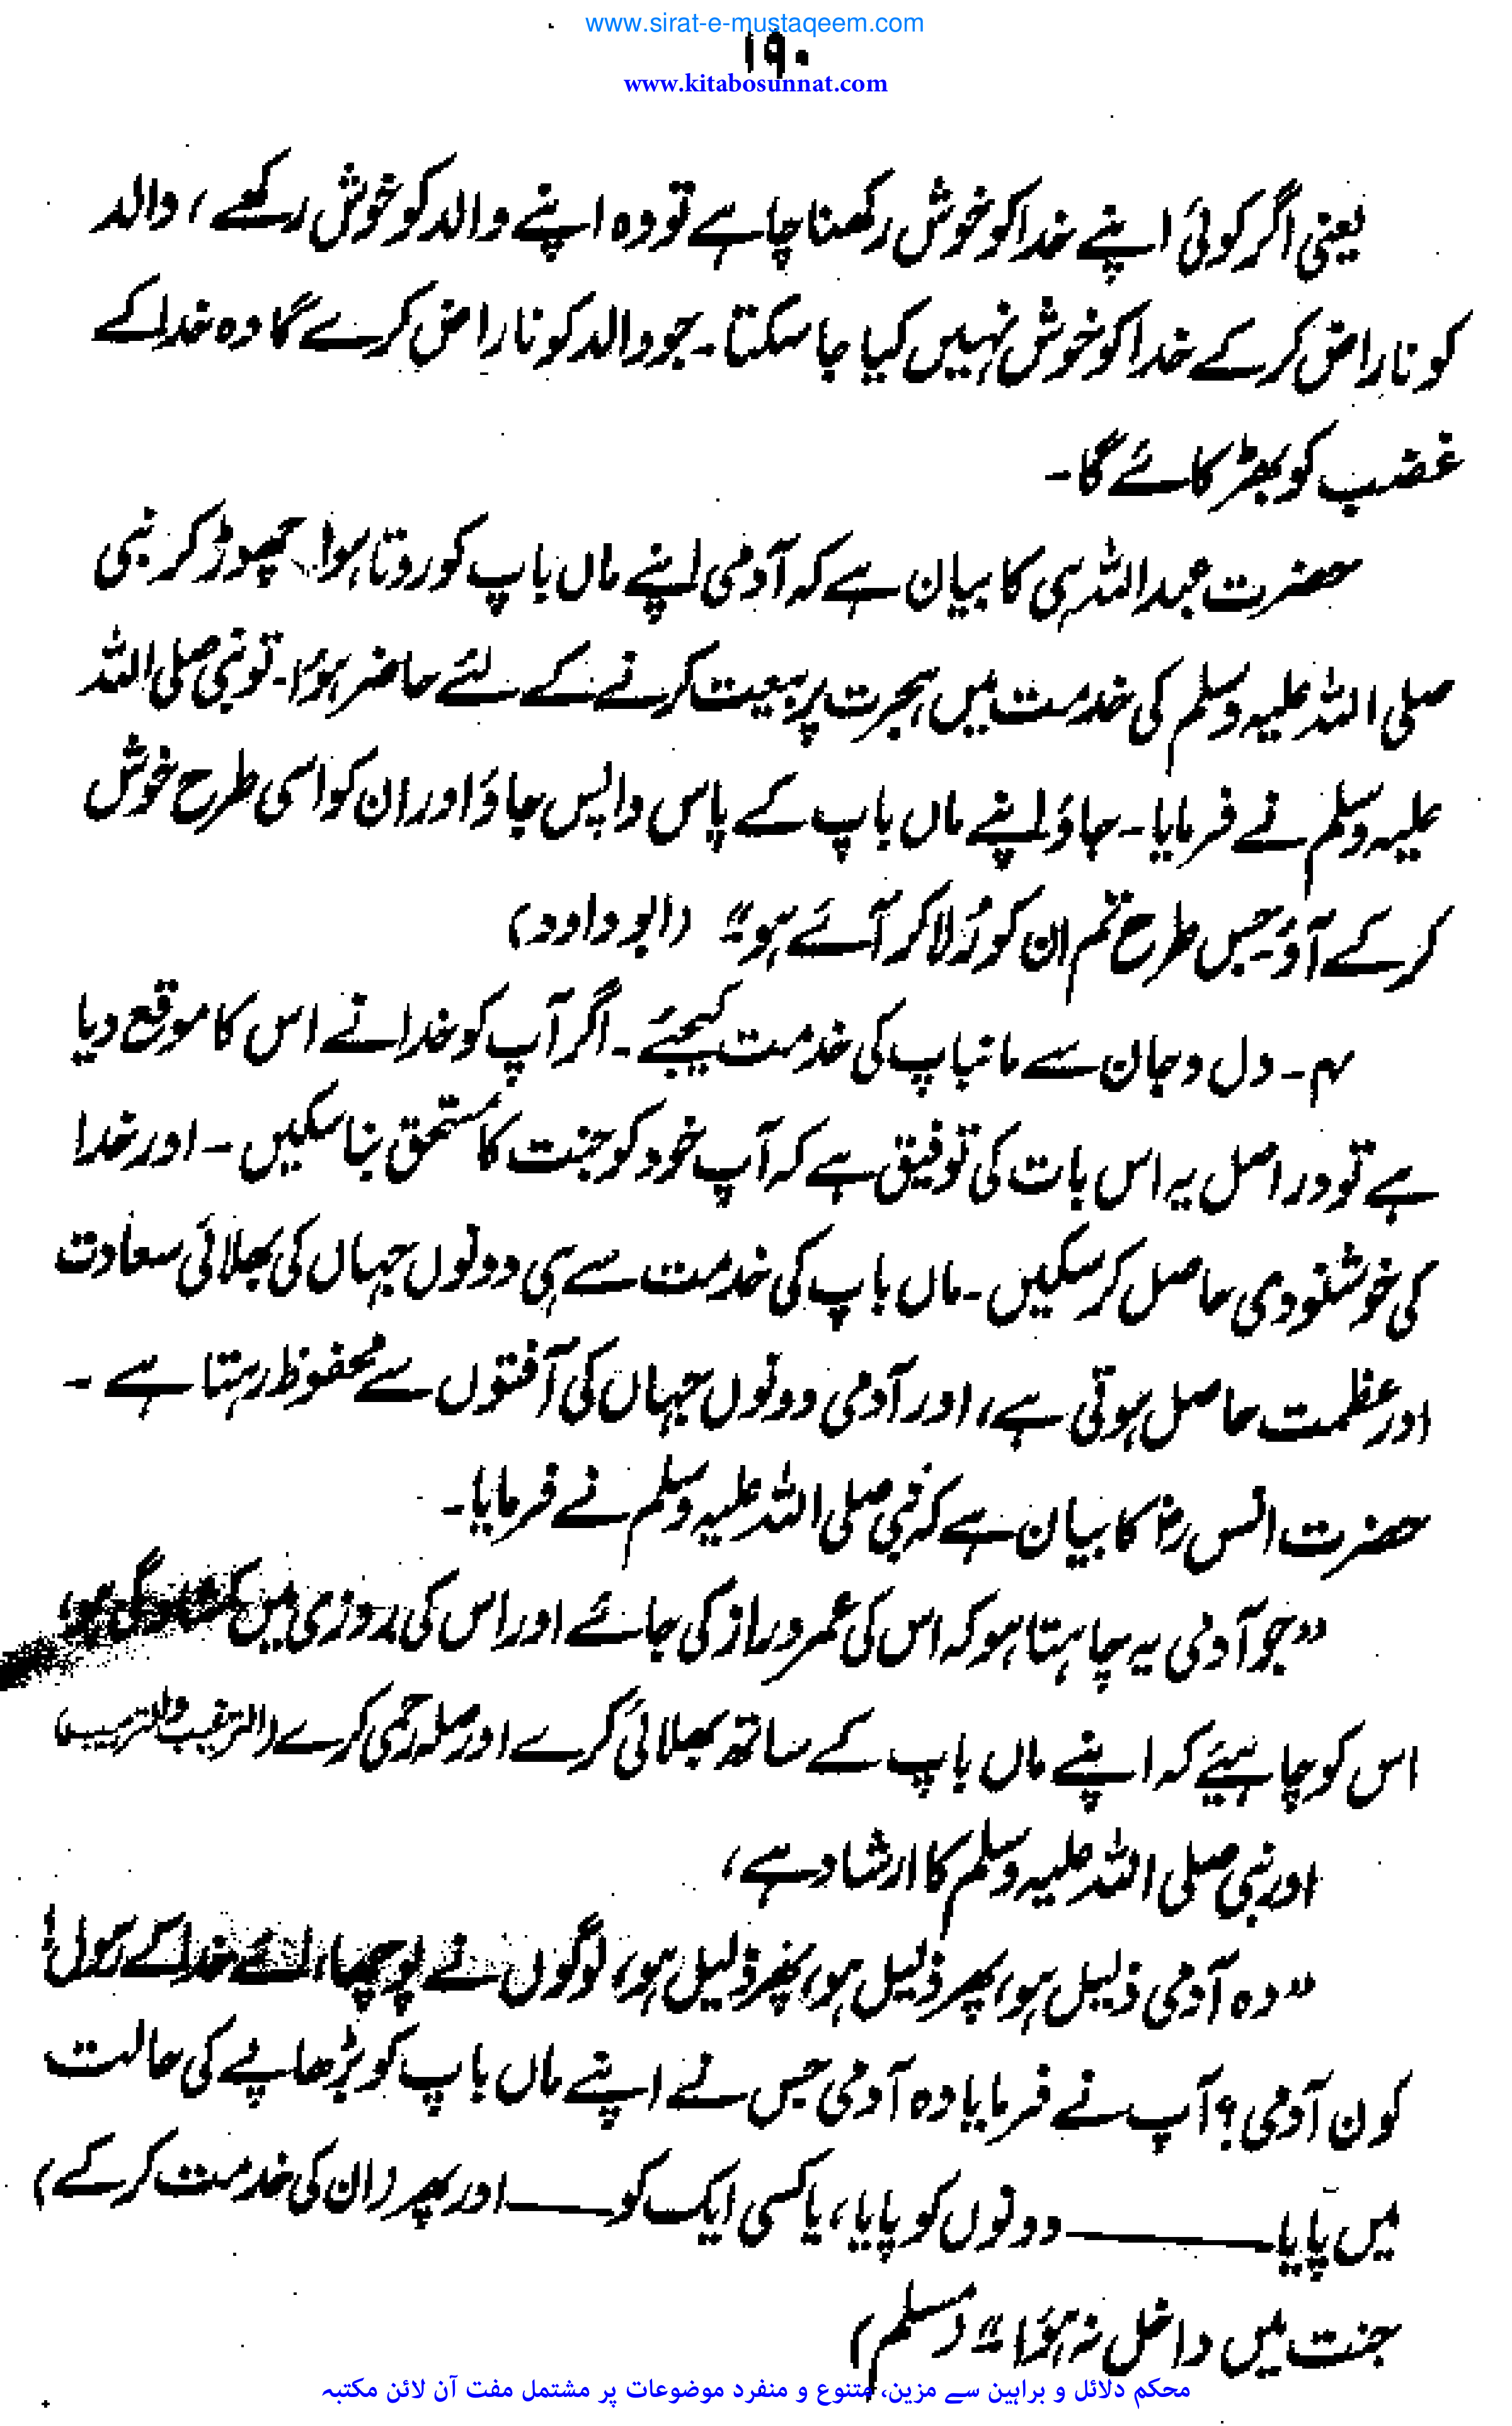 www.sirat-e-mustaqeem.com
۱۹۰
www.kitabosunnat.com
یعنی اگر کوئی اپنے خدا کو خوش رکھنا چاہے تو وہ اپنے والد کو خوش رکھے، والد
کو ناراض کر کے خدا کو خوش نہیں کیا جا سکتا۔ جو والد کو ناراض کرے گا وہ خدا کے
غضب کو بھڑکائے گا۔
حضرت عبداللہ ہی کا بیان ہے کہ آدمی اپنے ماں باپ کو روتا ہوا چھوڑ کر نبی
صلی اللہ علیہ وسلم کی خدمت میں ہجرت پر بیعت کرنے کے لئے حاضر ہوا۔ تو نبی صلی اللہ
علیہ وسلم نے فرمایا۔ جاؤ اپنے ماں باپ کے پاس واپس جاؤ اور ان کو اسی طرح خوش
کر کے آؤ۔ جس طرح تم ان کو رُلا کر آئے ہو۔" (ابو داود)
۴۔ دل و جان سے مانباپ کی خدمت کیجئے۔ اگر آپ کو خدا نے اس کا موقع دیا
ہے تو در اصل یہ اس بات کی توفیق ہے کہ آپ خود کو جنت کا مستحق بنا سکیں۔ اور خدا
کی خوشنودی حاصل کر سکیں۔ ماں باپ کی خدمت سے ہی دونوں جہاں کی بھلائی سعادت
اور عظمت حاصل ہوتی ہے، اور آدمی دونوں جہاں کی آفتوں سے محفوظ رہتا ہے۔
حضرت انس رضؓ کا بیان ہے کہ نبی صلی اللہ علیہ وسلم نے فرمایا۔
"جو آدمی یہ چاہتا ہو کہ اس کی عمر دراز کی جائے اور اس کی روزی میں کشادگی ہو،
اس کو چاہیئے کہ اپنے ماں باپ کے ساتھ بھلائی کرے اور صلہ رحمی کرے (الترغیب والترہیب)
اور نبی صلی اللہ علیہ وسلم کا ارشاد ہے،
"وہ آدمی ذلیل ہو، پھر ذلیل ہو، پھر ذلیل ہو، لوگوں نے پوچھا، اے خدا کے رسول!
کون آدمی؟ آپ نے فرمایا وہ آدمی جس نے اپنے ماں باپ کو بڑھاپے کی حالت
میں پایا ــــــ دونوں کو پایا، یا کسی ایک کو ـــــ اور پھر (ان کی خدمت کر کے)
جنت میں داخل نہ ہوا۔" (مسلم)
محکم دلائل و براہین سے مزین، متنوع و منفرد موضوعات پر مشتمل مفت آن لائن مکتبہ